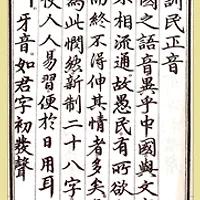 訓民正音
國之語音異乎中國與文
不相流通。故愚民有所欲
而終不得伸其情者多矣。
爲此憫然新制二十八字
使人人易習便於日用耳
ㄱ。牙音。如君字初發聲